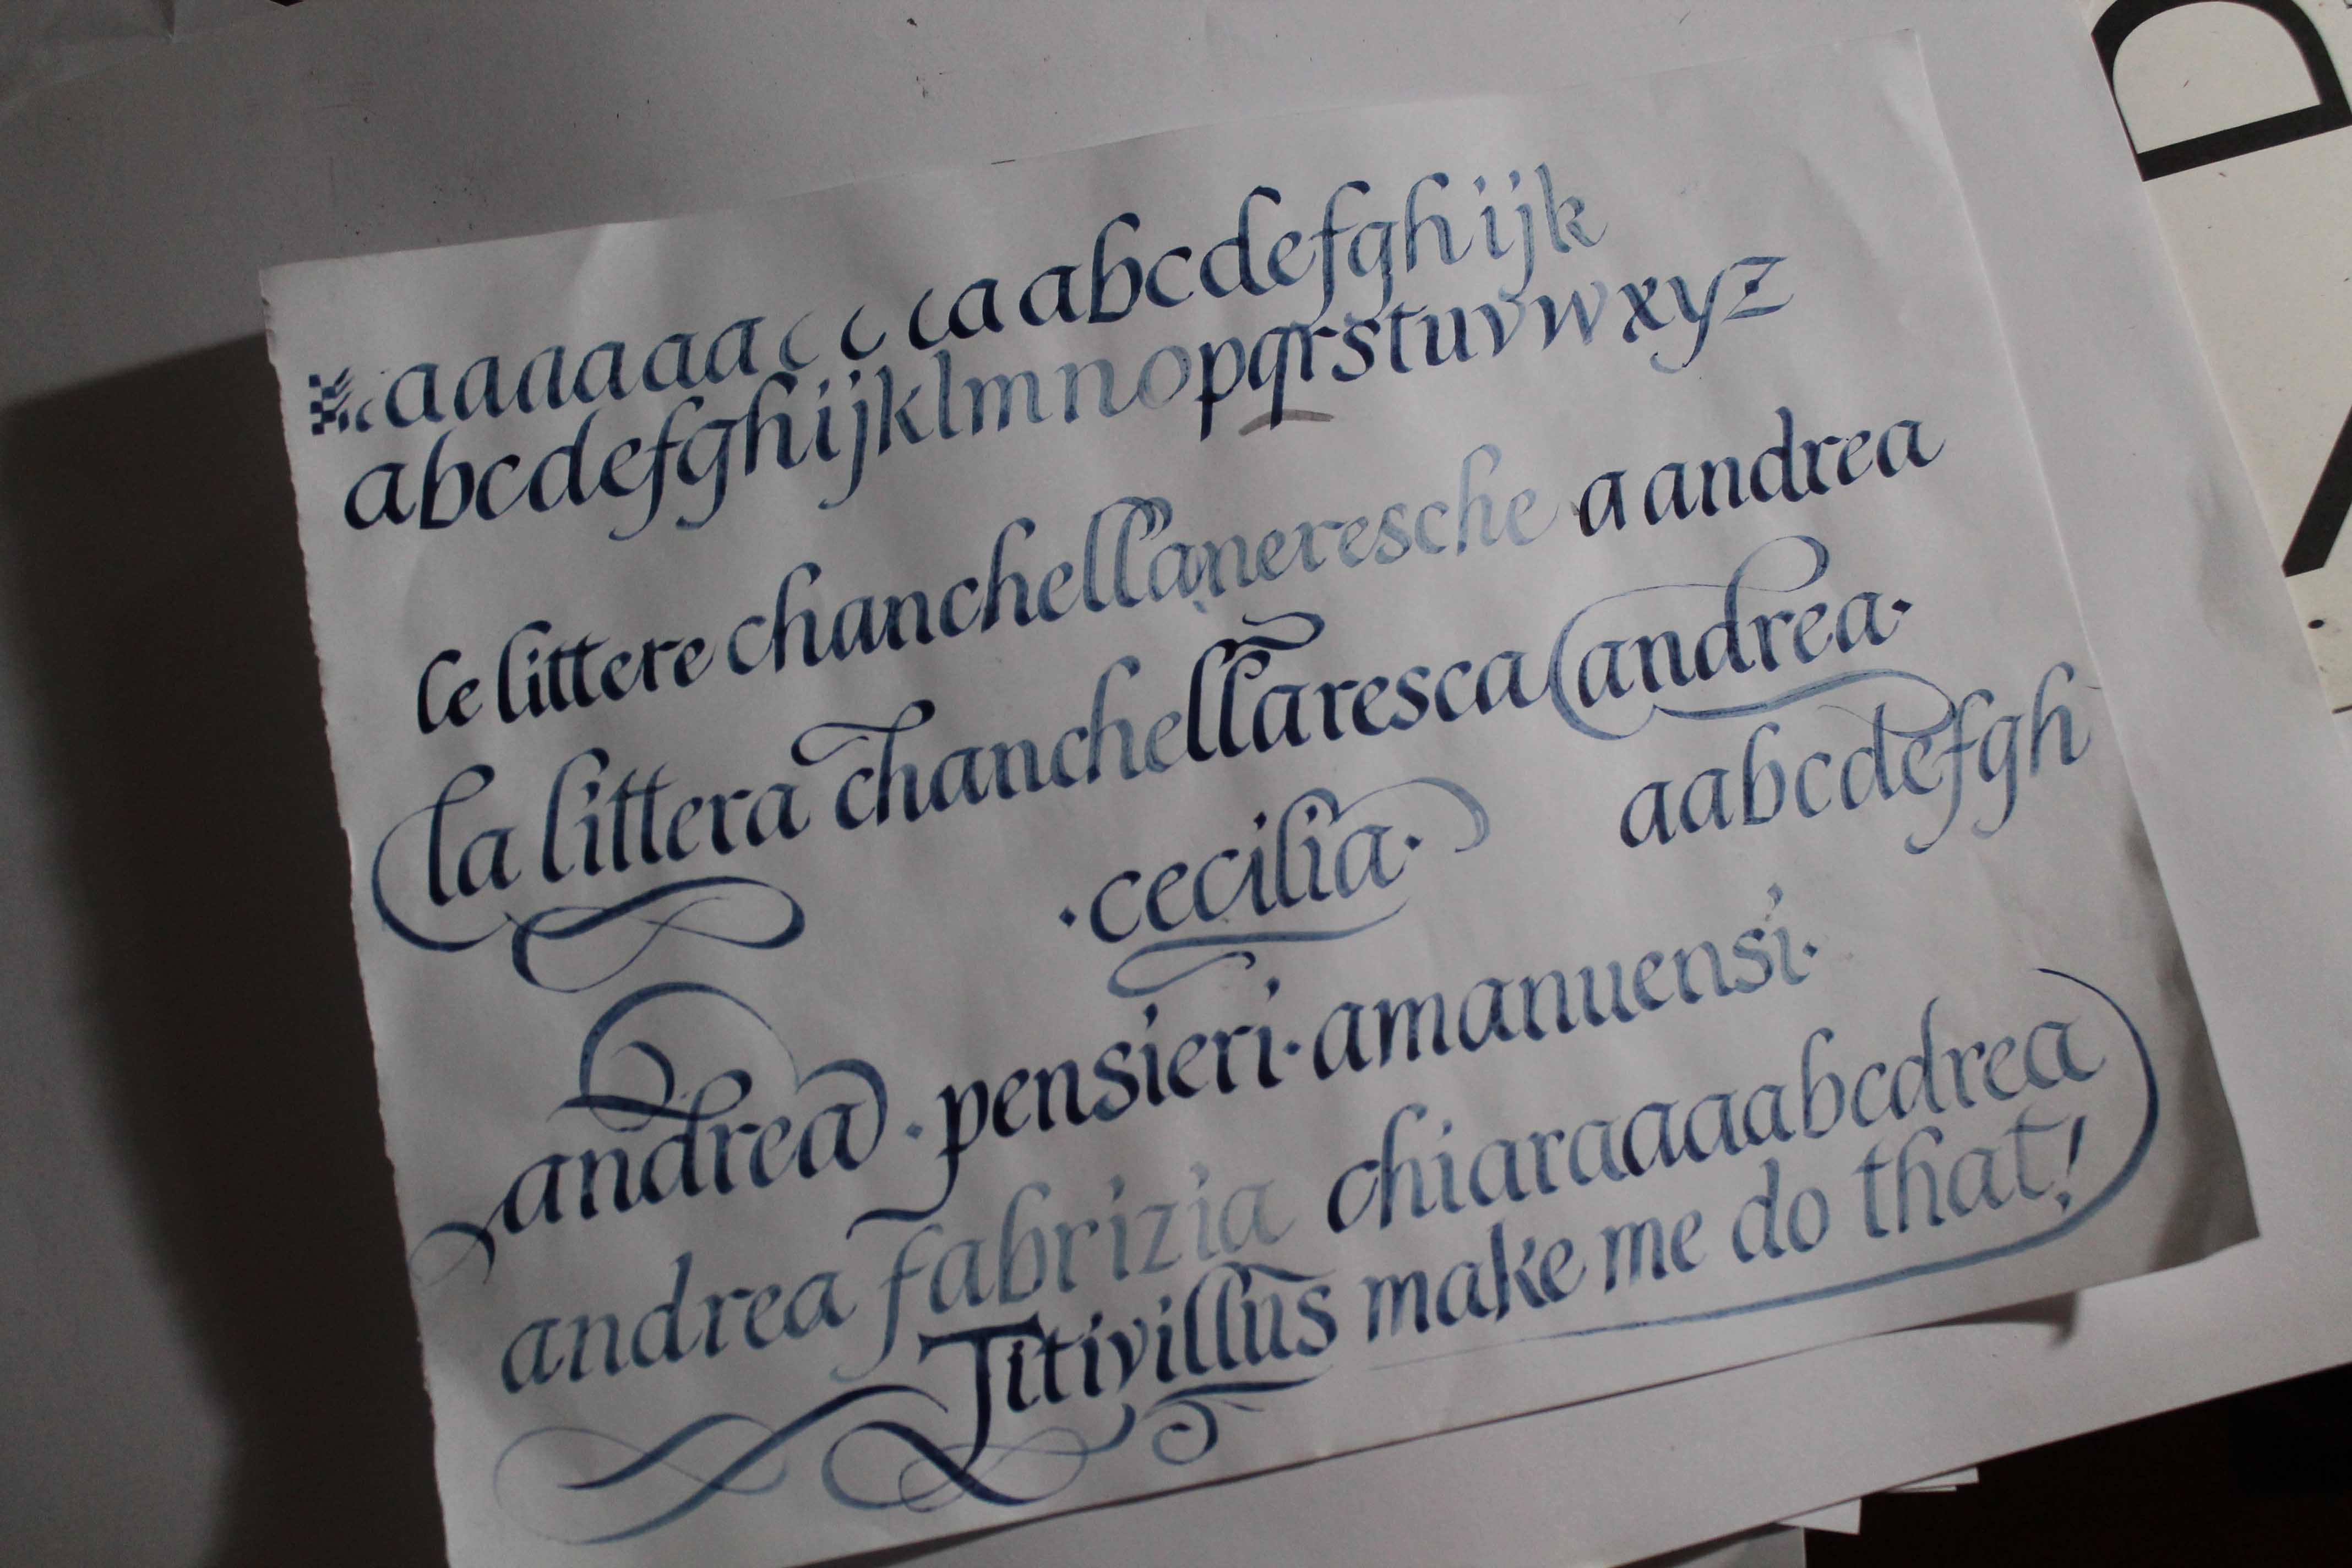 aaaaaaa c c caabcdefghijk
abcdefghijklmnopqrstuvwxyz
le littere chanchellaneresche a andrea
la littera chanchellaresca andrea·
·cecilia· aabcdefgh
andrea · pensieri · amanuensi·
andrea fabrizia chiaraaaabcdrea
Titivillus make me do that!
D